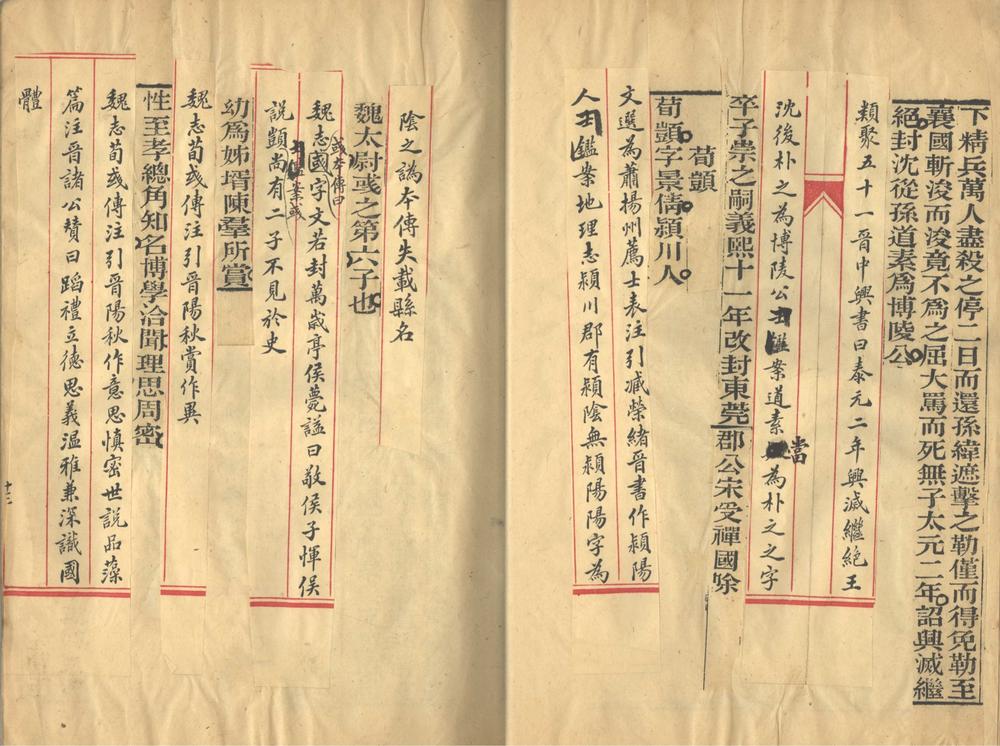 下精兵萬人盡殺之停二日而還孫緯遮擊之勒僅而得免勒至
襄國斬浚而浚竟不為之屈大罵而死無子太元二年詔興滅繼
絕封沈從孫道素為博陵公
類聚五十一晉中興書曰泰元二年興滅繼絕王
沈後朴之為博陵公士鑑案道素當為朴之之字
卒子崇之嗣義熙十一年改封東莞郡公宋受禪國除
荀顗
荀顗字景倩潁川人
文選為蕭揚州薦士表注引臧榮緒晉書作潁陽
人士鑑案地理志潁川郡有潁陰無潁陽陽字為
陰之譌本傳失載縣名
魏太尉彧之第六子也
魏志彧本傳曰彧字文若封萬歲亭侯薨諡曰敬侯子惲侯
說顗尚有二子不見於史
幼為姊壻陳羣所賞
魏志荀彧傳注引晉陽秋賞作異
性至孝總角知名博學洽聞理思周密
魏志荀彧傳注引晉陽秋作意思慎密世說品藻
篇注晉諸公贊曰蹈禮立德思義溫雅兼深識國
體
十三